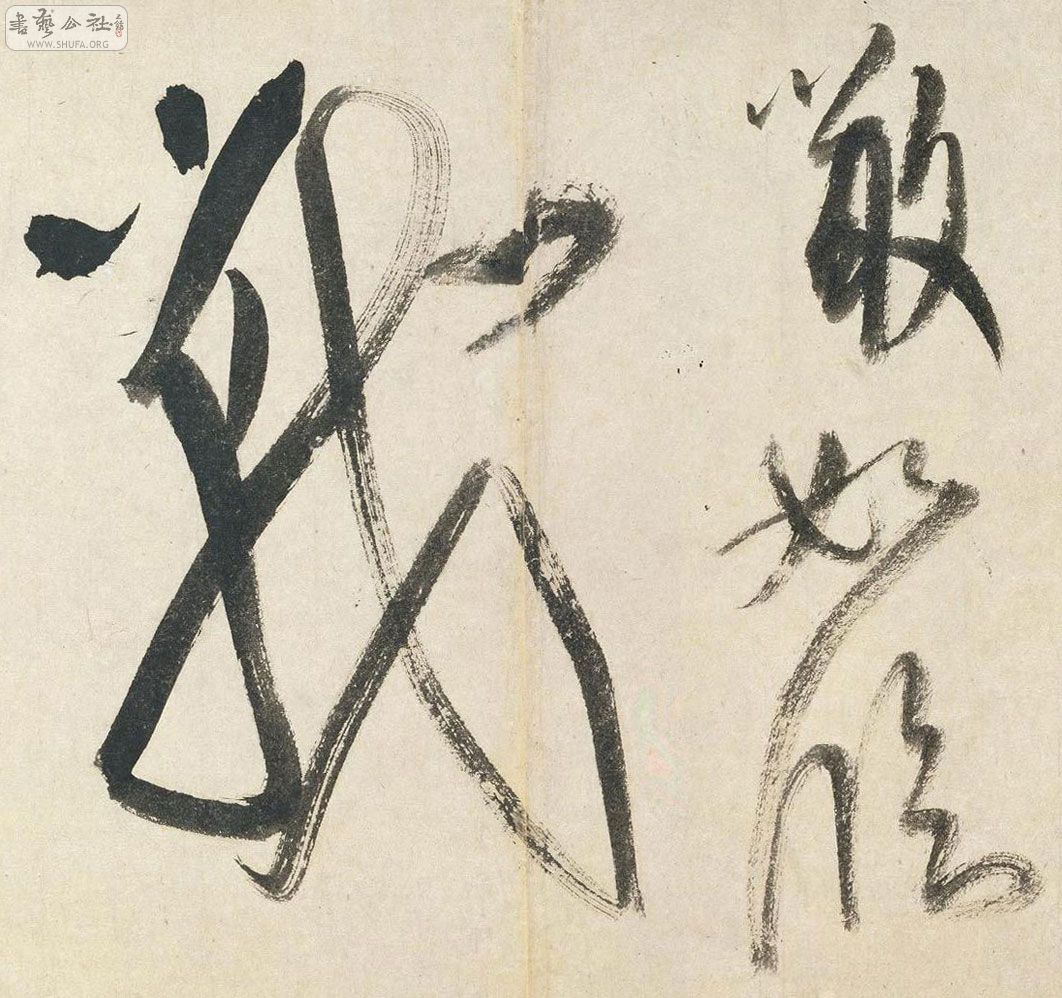 書藝公社
WWW.SHUFA.ORG
噉如臨
戰